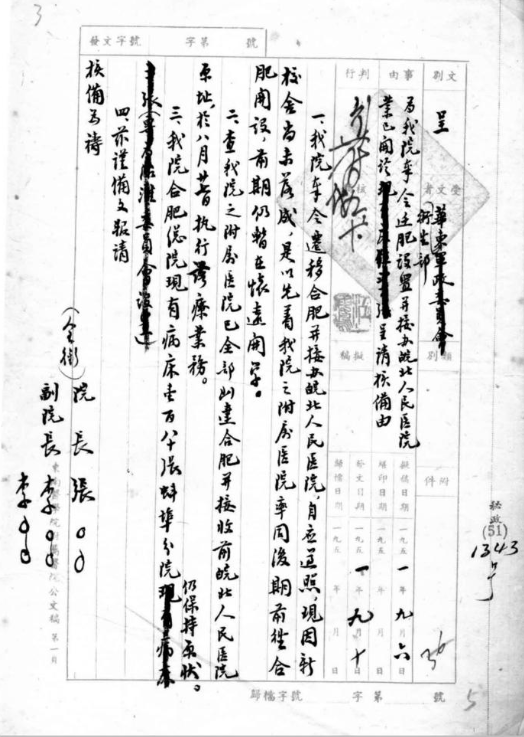 3
發文字號
字第
號
文別
事由
判行
呈
受文者
華東軍政委員會
衛生部
類別
附件
為我院奉令遷肥設置并接办皖北人民医院
業已開於
呈請核備由
核
擬稿
擬稿日期 一九五一年九月六日
繕印日期 一九五 年 月 日
發文日期 一九五一年九月十日
歸檔日期 一九五 年 月 日
一、我院奉令遷移合肥并接办皖北人民医院，自应遵照，現因新
校舍尚未落成，是以先着我院之附屬医院率同後期前往合
肥開設，前期仍暫在懷遠開学。
二、查我院之附屬医院已全部遷達合肥并接收前皖北人民医院
原址，於八月廿 執行診療業務。
三、我院合肥總院現有病床壹百八十張蚌埠分院現有病床
仍保持原狀。
張
四、茲謹備文報請
核備为禱
（全銜）院長 張〇〇
副院長 李〇〇
李〇〇
東南醫學院附屬醫院公文稿 第一頁
秘政
(51)
1343
号
歸檔字號
字第
號
5